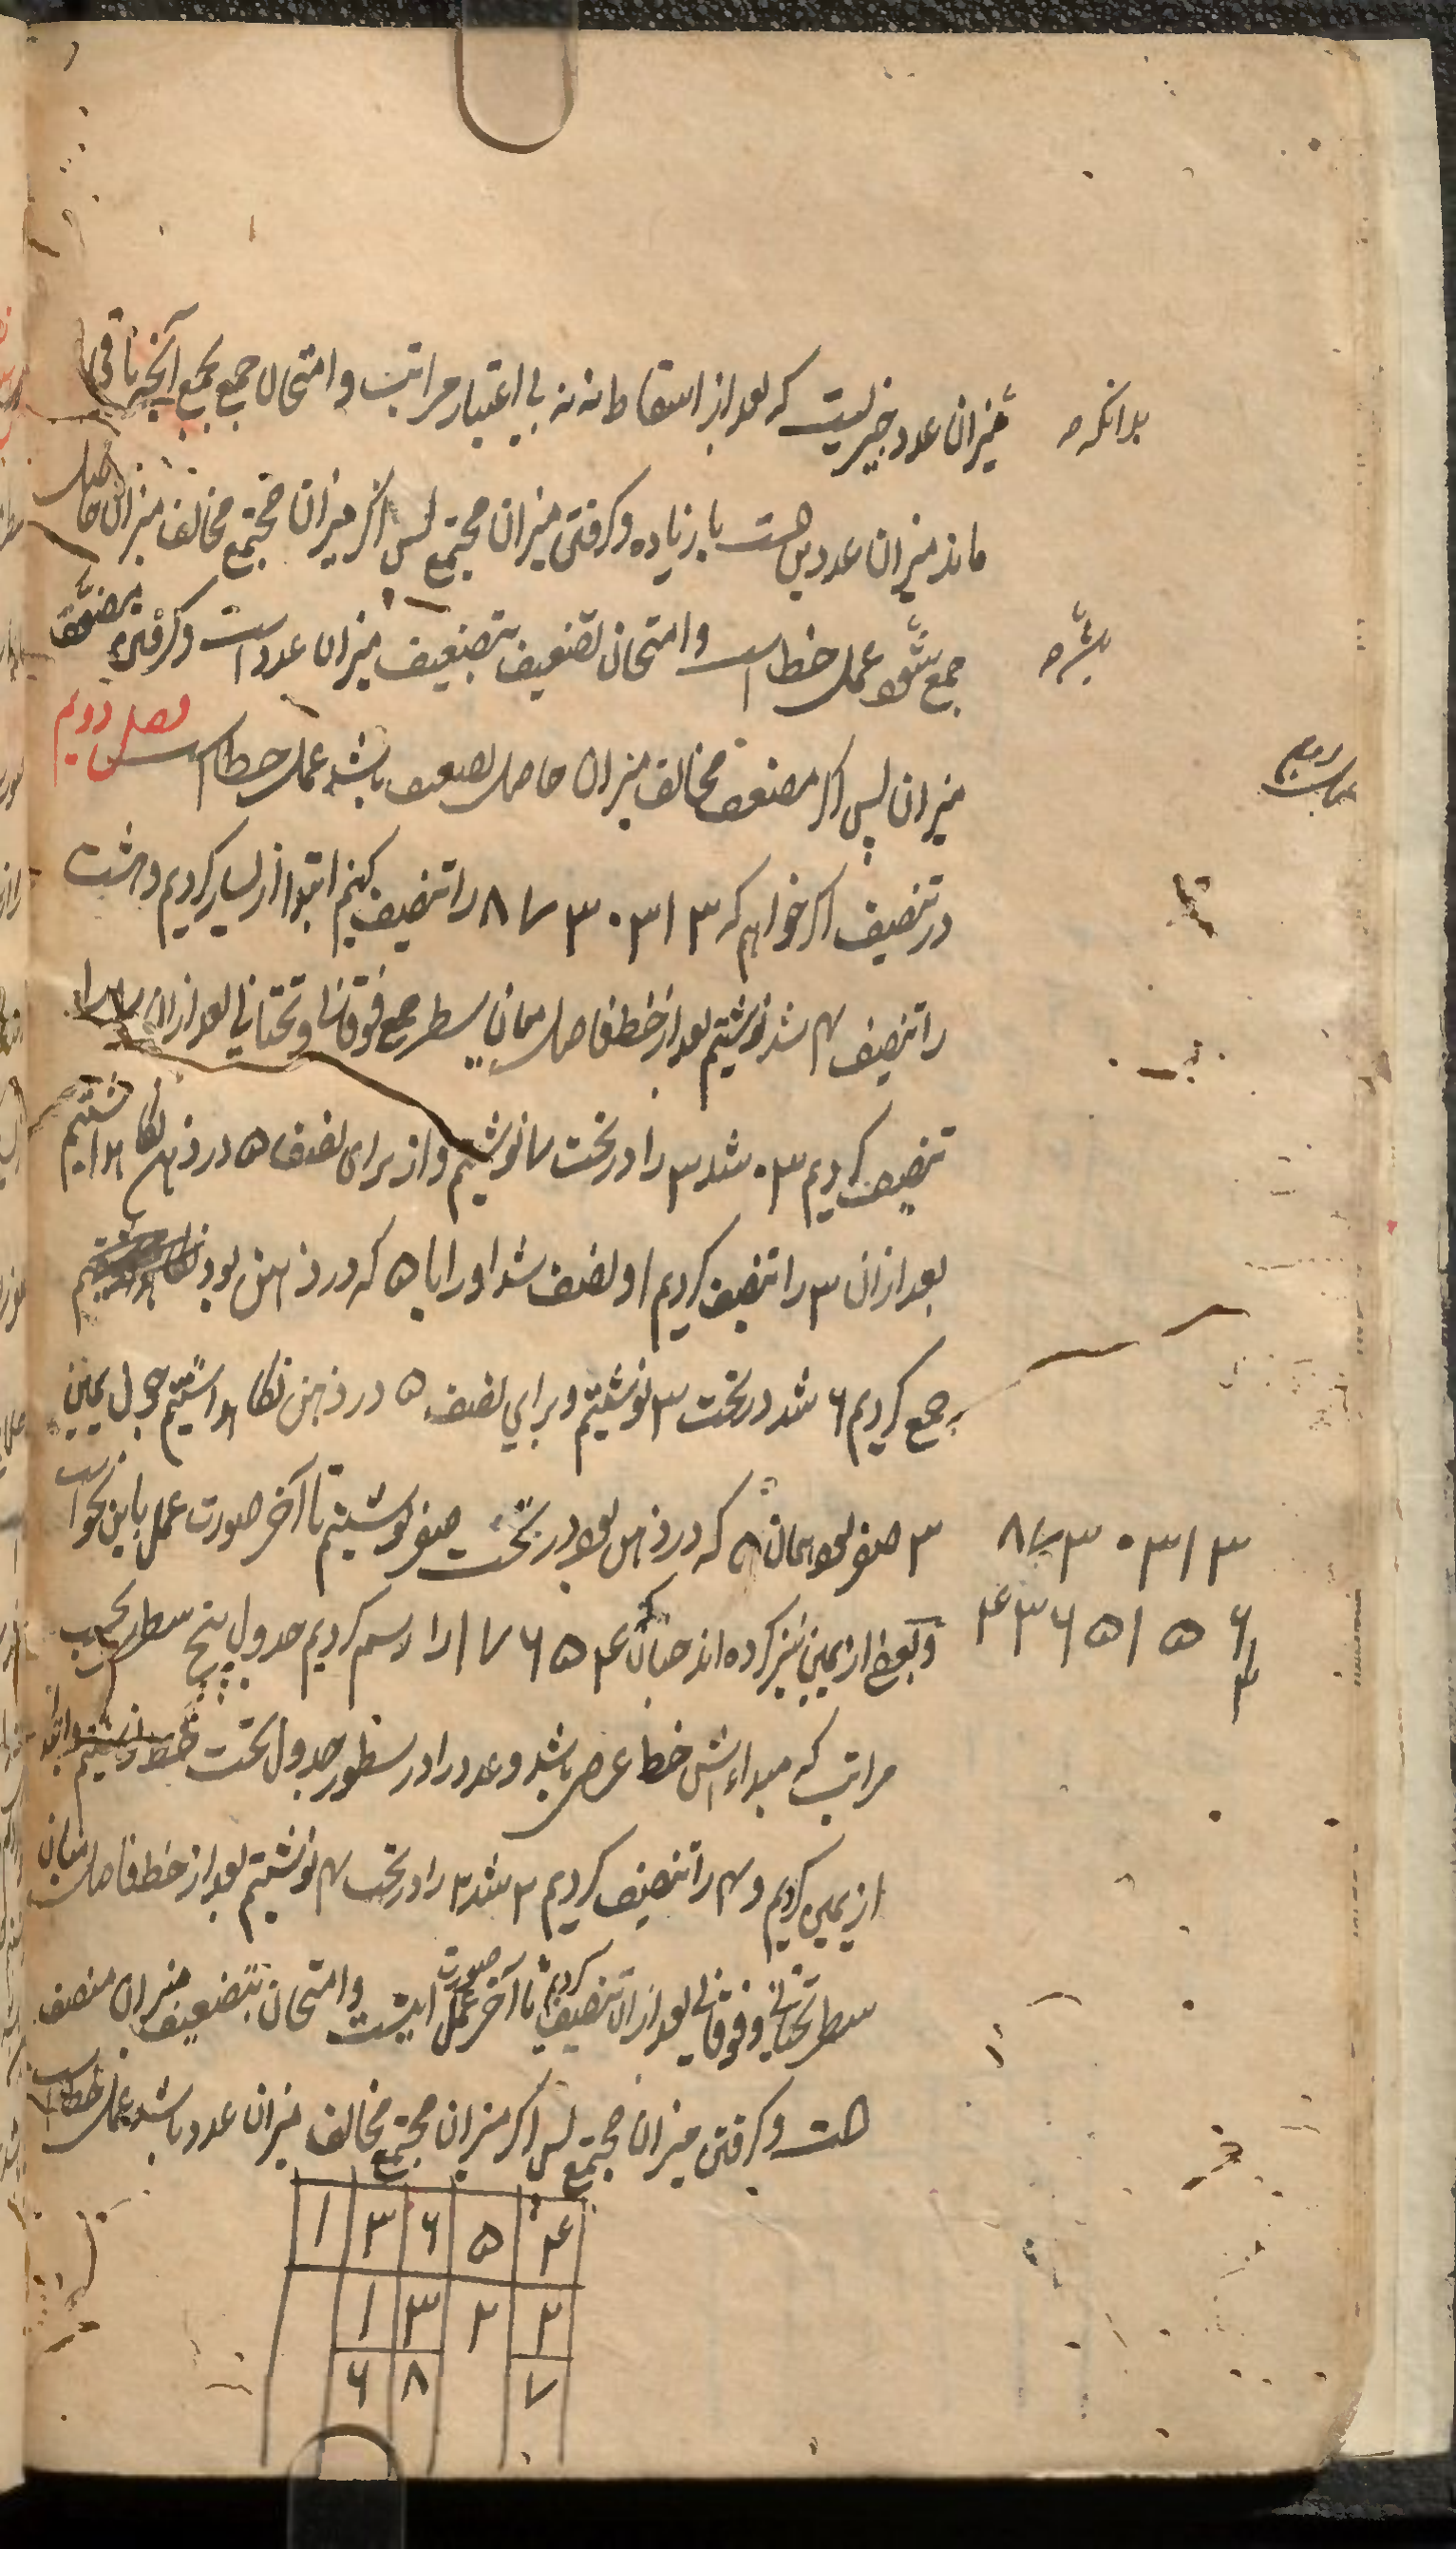 بدانکه میزان عدد چیزیست که بعد از اسقاط نه نه بی اعتبار مراتب و امتحان جمع بجمع آنچه باقی
ماند میزان عددین هست با زیاده و کرفتن میزان مجتمع پس اکر میزان مجتمع مخالف میزان حاصل
جمع شود عمل خطا است و امتحان تضعیف بتضعیف میزان عدد است و کرفتن مضعف
میزان پس اکر مضعف مخالف میزان حاصل تضعیف باشد عمل خطا است فصل دویم
در تنصیف اکر خواهم که ۸۷۳۰۳۱۳ را تنصیف کنیم ابتدا از یسار کردیم و هشت
را تنصیف ۴ شد نوشتیم بعد از خط فاصل میان سطر جمع فوقانی و تحتانی بعد از آن ۷ را
تنصیف کردیم ۳۰ شد ۳ را در تحت ۷ نوشتیم و از برای نصف ۵ در ذهن نکاه داشتیم
بعد از آن ۳ را تنصیف کردیم ۱ و نصف شد او را با ۵ که در ذهن بود
جمع کردیم ۶ شد در تحت ۳ نوشتیم و برای نصف ۵ در ذهن نکاه داشتیم چون یمین
۳ صفر بود همان ۵ که در ذهن بود در تحت صفر نوشتیم تا آخر صورت عمل باین نحو است
۸۷۳۰۳۱۳
۴۳۶۵۱۵۶
و بعضی از یمین نیز کرده اند چنان که ۴۵۶۷۱ را رسم کردیم جدول پنج سطر بحسب
مراتب که مبداءاش خط عرض باشد و عدد را در سطور جدول تحت خط نوشتیم و ابتدا
از یمین کردیم و ۴ را تنصیف کردیم ۲ شد ۲ را در تحت ۴ نوشتیم بعد از خط فاصل میان
سطر تحتانی و فوقانی بعد از آن تنصیف کردیم تا آخر صورت عمل اینست و امتحان بتضعیف میزان منصف
هست و کرفتن میزان مجتمع پس اکر میزان مجتمع مخالف میزان عدد باشد عمل خطا است
۱ ۳ ۶ ۵ ۴
۱ ۳ ۲ ۲
۶ ۸ ۷